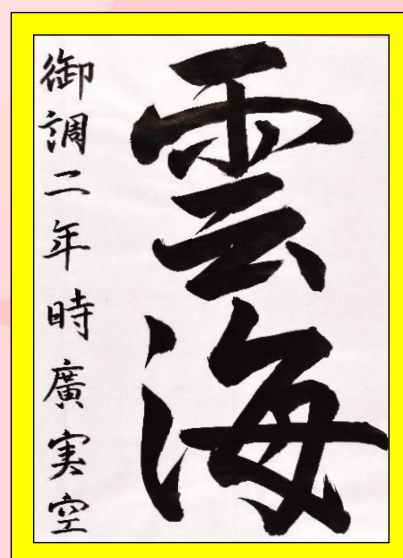 雲海
御調二年時廣実空